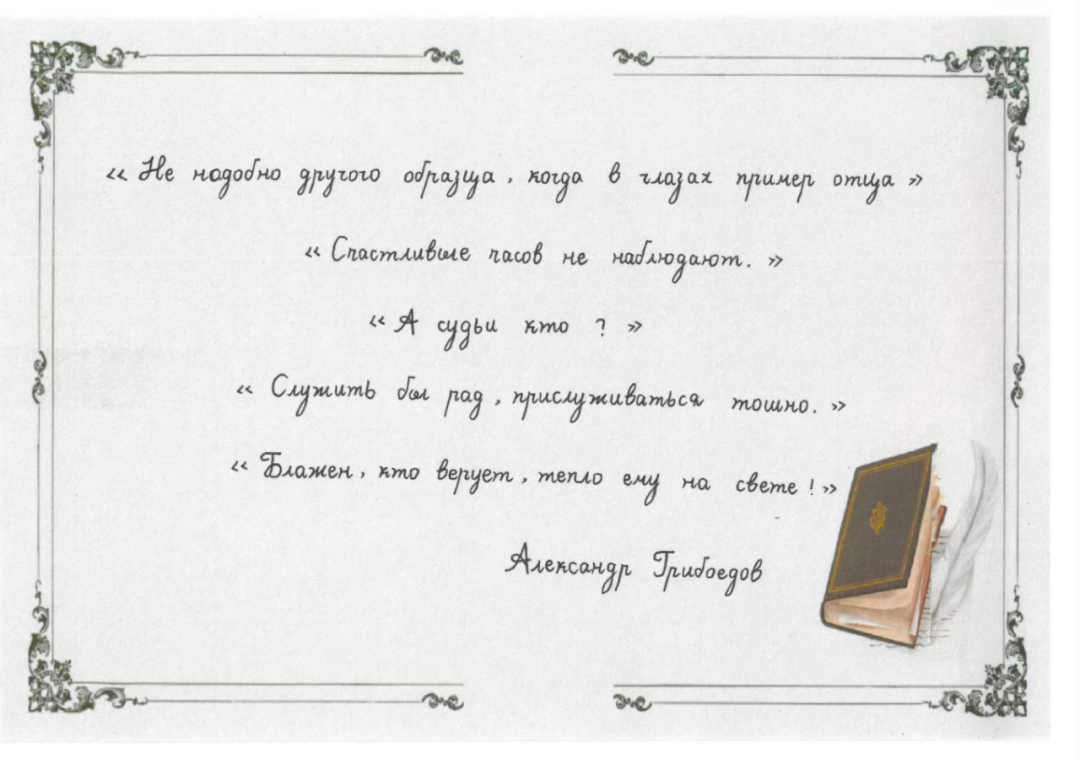 « Не надобно другого образца, когда в глазах пример отца »
« Счастливые часов не наблюдают. »
« А судьи кто ? »
« Служить бы рад, прислуживаться тошно. »
« Блажен, кто верует, тепло ему на свете ! »
Александр Грибоедов